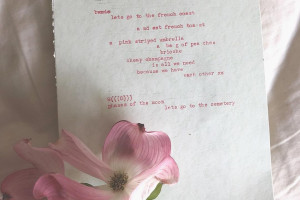 lets go to the french coast
a pink striped umbrella
a bag of peaches
brioche
cheap champagne
is all we need
because we have
each other xx
phases of the moon
lets go to the cemetery